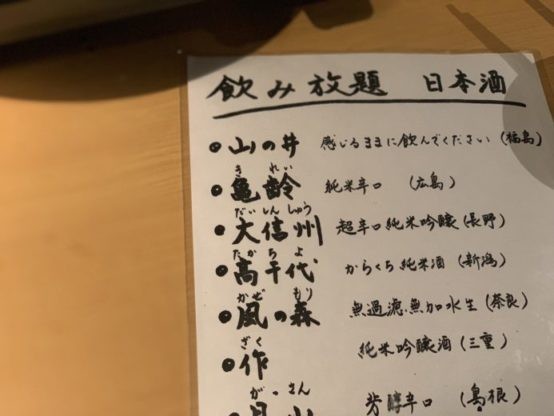 飲み放題 日本酒
・山の井 感じるままに飲んでください (福島)
きれい
・亀齢 純米辛口 (広島)
だいしんしゅう
・大信州 超辛口純米吟醸 (長野)
たかちよ
・高千代 からくち純米酒 (新潟)
かぜ もり
・風の森 無過濾無加水生 (奈良)
ざく
・作 純米吟醸酒 (三重)
がっさん
月山 芳醇辛口 (島根)